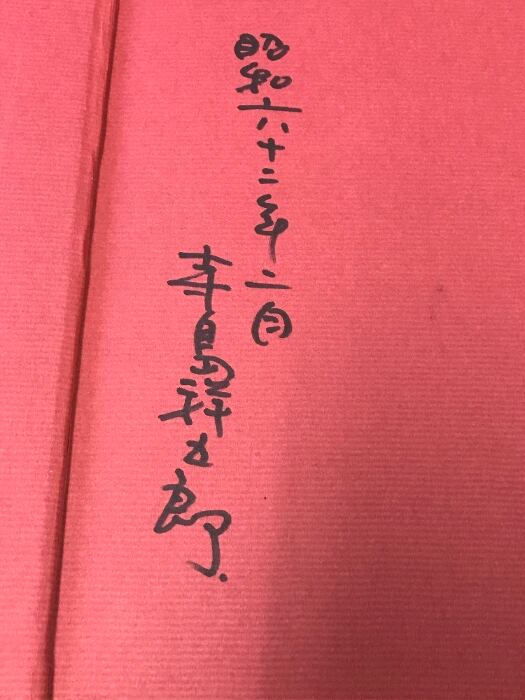 昭和六十二年二月
寺島祥五郎